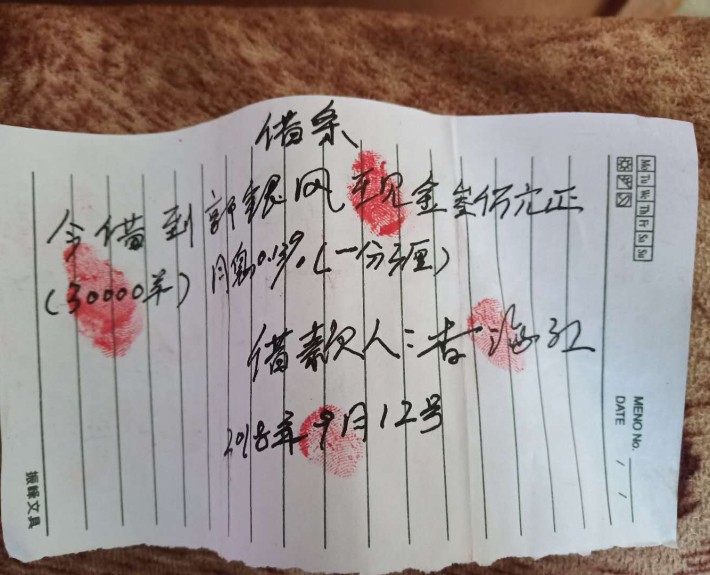 借条
今借到郭银凤现金叁仟元正
(30000羊) 月息0.13。(一分3厘)
借款人:李海红
2018年9月12号
Mo Tu We Th Fr Sa Su
MENO No.
DATE / /
振峰文具